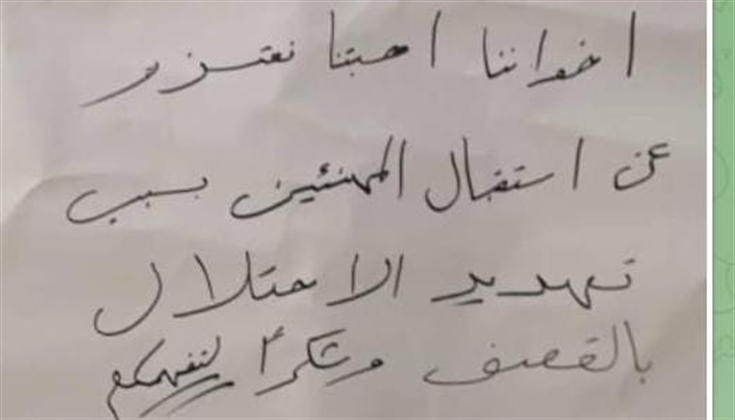 اخواننا احبتنا نعتزر
عن استقبال المهنئين بسبب
تهديد الاحتلال
بالقصف وشكراً لتفهمكم